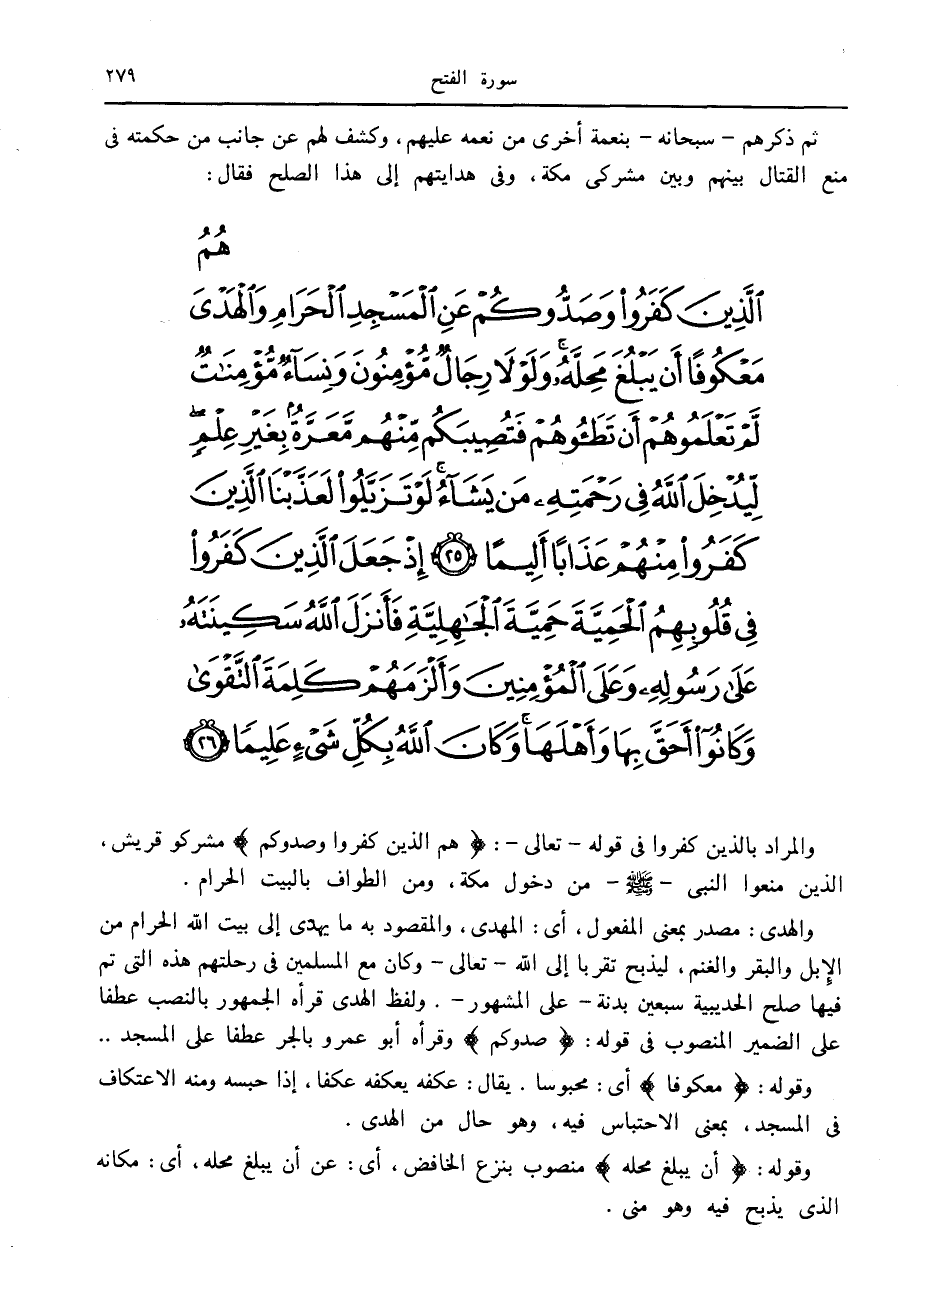 سورة الفتح ٢٧٩
ثم ذكرهم – سبحانه – بنعمة أخرى من نعمه عليهم ، وكشف لهم عن جانب من حكمته فى
منع القتال بينهم وبين مشركى مكة ، وفى هدايتهم إلى هذا الصلح فقال :
هُمُ
ٱلَّذِينَ كَفَرُوا۟ وَصَدُّوكُمْ عَنِ ٱلْمَسْجِدِ ٱلْحَرَامِ وَٱلْهَدْىَ
مَعْكُوفًا أَن يَبْلُغَ مَحِلَّهُۥ ۚ وَلَوْلَا رِجَالٌ مُّؤْمِنُونَ وَنِسَآءٌ مُّؤْمِنَـٰتٌ
لَّمْ تَعْلَمُوهُمْ أَن تَطَـُٔوهُمْ فَتُصِيبَكُم مِّنْهُم مَّعَرَّةٌۢ بِغَيْرِ عِلْمٍ ۖ
لِّيُدْخِلَ ٱللَّهُ فِى رَحْمَتِهِۦ مَن يَشَآءُ ۚ لَوْ تَزَيَّلُوا۟ لَعَذَّبْنَا ٱلَّذِينَ
كَفَرُوا۟ مِنْهُمْ عَذَابًا أَلِيمًا ٢٥ إِذْ جَعَلَ ٱلَّذِينَ كَفَرُوا۟
فِى قُلُوبِهِمُ ٱلْحَمِيَّةَ حَمِيَّةَ ٱلْجَـٰهِلِيَّةِ فَأَنزَلَ ٱللَّهُ سَكِينَتَهُۥ
عَلَىٰ رَسُولِهِۦ وَعَلَى ٱلْمُؤْمِنِينَ وَأَلْزَمَهُمْ كَلِمَةَ ٱلتَّقْوَىٰ
وَكَانُوٓا۟ أَحَقَّ بِهَا وَأَهْلَهَا ۚ وَكَانَ ٱللَّهُ بِكُلِّ شَىْءٍ عَلِيمًا ٢٦
والمراد بالذين كفروا فى قوله – تعالى – : ﴿ هم الذين كفروا وصدوكم ﴾ مشركو قريش ،
الذين منعوا النبى – ﷺ – من دخول مكة ، ومن الطواف بالبيت الحرام .
والهدى : مصدر بمعنى المفعول ، أى : المهدى ، والمقصود به ما يهدى إلى بيت الله الحرام من
الإبل والبقر والغنم ، ليذبح تقربا إلى الله – تعالى – وكان مع المسلمين فى رحلتهم هذه التى تم
فيها صلح الحديبية سبعين بدنة – على المشهور – . ولفظ الهدى قرأه الجمهور بالنصب عطفا
على الضمير المنصوب فى قوله : ﴿ صدوكم ﴾ وقرأه أبو عمرو بالجر عطفا على المسجد ..
وقوله : ﴿ معكوفا ﴾ أى : محبوسا . يقال : عكفه يعكفه عكفا ، إذا حبسه ومنه الاعتكاف
فى المسجد ، بمعنى الاحتباس فيه ، وهو حال من الهدى .
وقوله : ﴿ أن يبلغ محله ﴾ منصوب بنزع الخافض ، أى : عن أن يبلغ محله ، أى : مكانه
الذى يذبح فيه وهو منى .